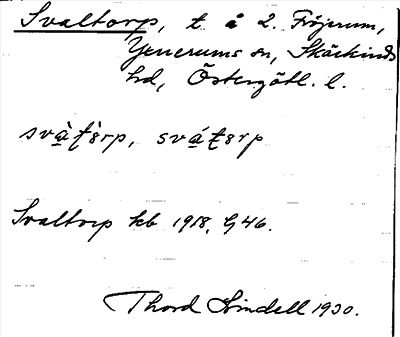 Svaltorp, t. å 2. Fröjerum,
Yxnerums sn, Skärkinds
hd, Östergötl. l.
svàt̀ərp, svátərp
Svaltorp kb 1918, G46.
Thord Lindell 1930.